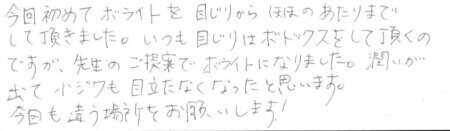 今回初めてボライトを目じりからほほのあたりまで
して頂きました。いつも目じりはボトックスをして頂くの
ですが、先生のご提案でボライトになりました。潤いが
出て小ジワも目立たなくなったと思います。
今回も違う場所をお願いします!